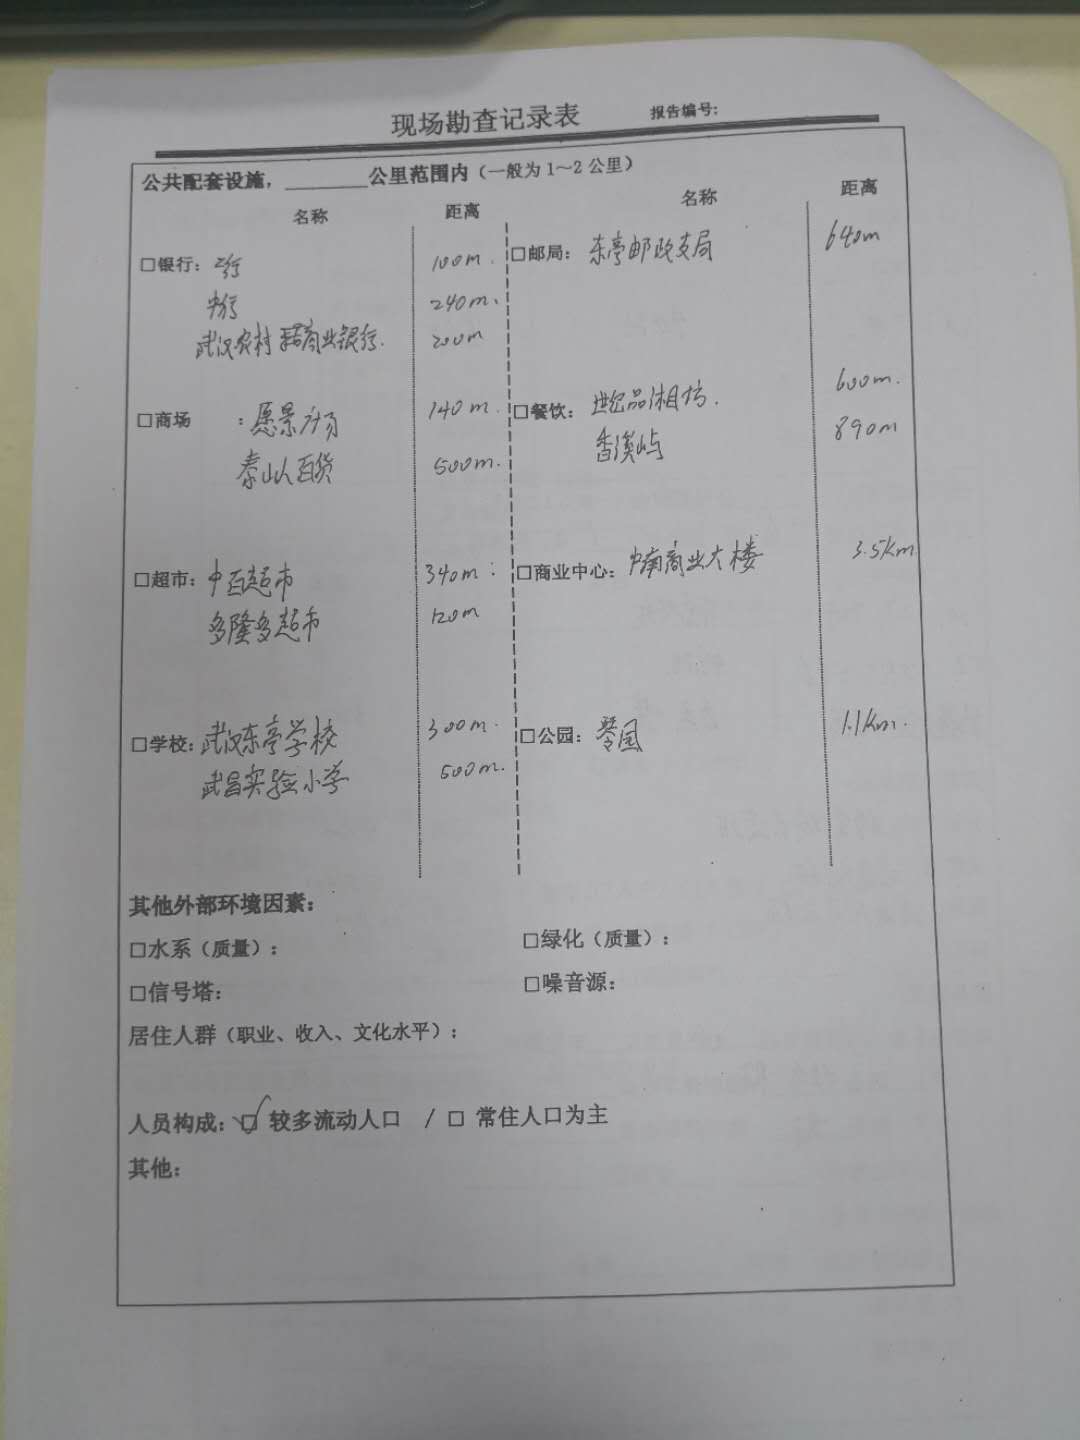 现场勘查记录表 报告编号:
公共配套设施，________公里范围内（一般为1～2公里）
名称 距离 名称 距离
□银行：工行 100m. □邮局：东亭邮政支局 640m
中行 240m.
武汉农村商业银行. 200m
□商场 ：愿景广场 140m. □餐饮：世纪品湘坊. 600m.
泰山人百货 500m. 香溪屿 890m
□超市：中百超市 340m: □商业中心：中南商业大楼 3.5km
多隆多超市 120m
□学校：武汉东亭学校 300m. □公园：琴园 1.1km.
武昌实验小学 500m.
其他外部环境因素：
□水系（质量）： □绿化（质量）：
□信号塔： □噪音源：
居住人群（职业、收入、文化水平）：
人员构成：☑ 较多流动人口 / □ 常住人口为主
其他：